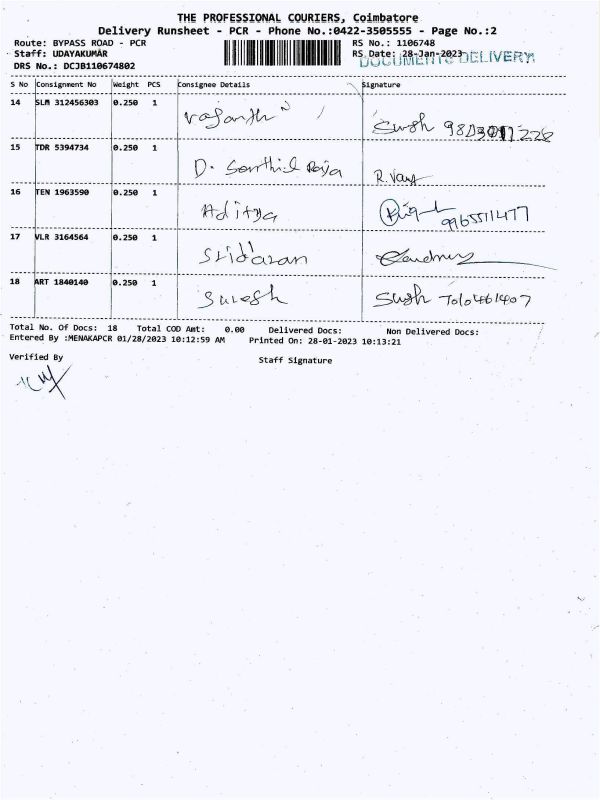 THE PROFESSIONAL COURIERS, Coimbatore
Delivery Runsheet - PCR - Phone No.:0422-3505555 - Page No.:2
Route: BYPASS ROAD - PCR RS No.: 1106748
Staff: UDAYAKUMAR RS Date: 28-Jan-2023
DOCUMENTS DELIVERY
DRS No.: DCJB110674802
S No Consignment No Weight PCS Consignee Details Signature
14 SLM 312456303 0.250 1
15 TDR 5394734 0.250 1 D. Senthil Raja
16 TEN 1963590 0.250 1 Aditya 9965511477
17 VLR 3164564 0.250 1 Sridaran
18 ART 1840140 0.250 1 Suresh
Total No. Of Docs: 18 Total COD Amt: 0.00 Delivered Docs: Non Delivered Docs:
Entered By :MENAKAPCR 01/28/2023 10:12:59 AM Printed On: 28-01-2023 10:13:21
Verified By Staff Signature